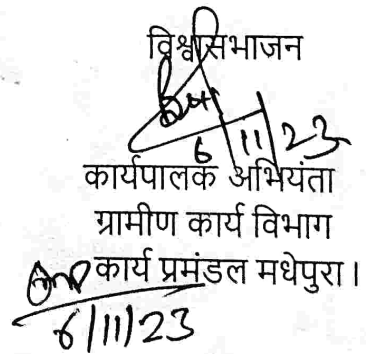 विश्वासभाजन
6/11/23
कार्यपालक अभियंता
ग्रामीण कार्य विभाग
कार्य प्रमंडल मधेपुरा।
6/11/23